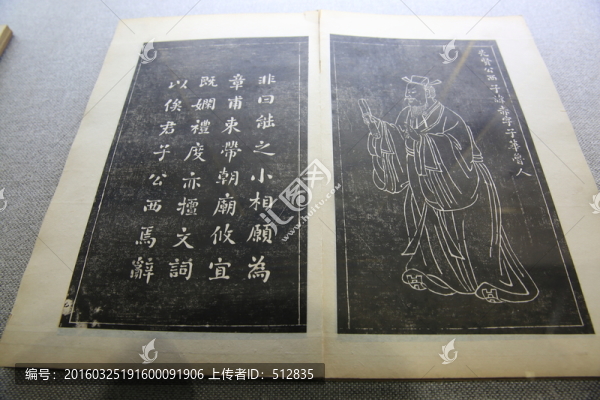 先賢公西子諱赤字子華魯人
非曰能之小相願為
章甫束帶朝廟攸宜
既嫻禮度亦擅文詞
以俟君子公西焉辭
汇图网
编号：20160325191600091906 上传者ID：512835